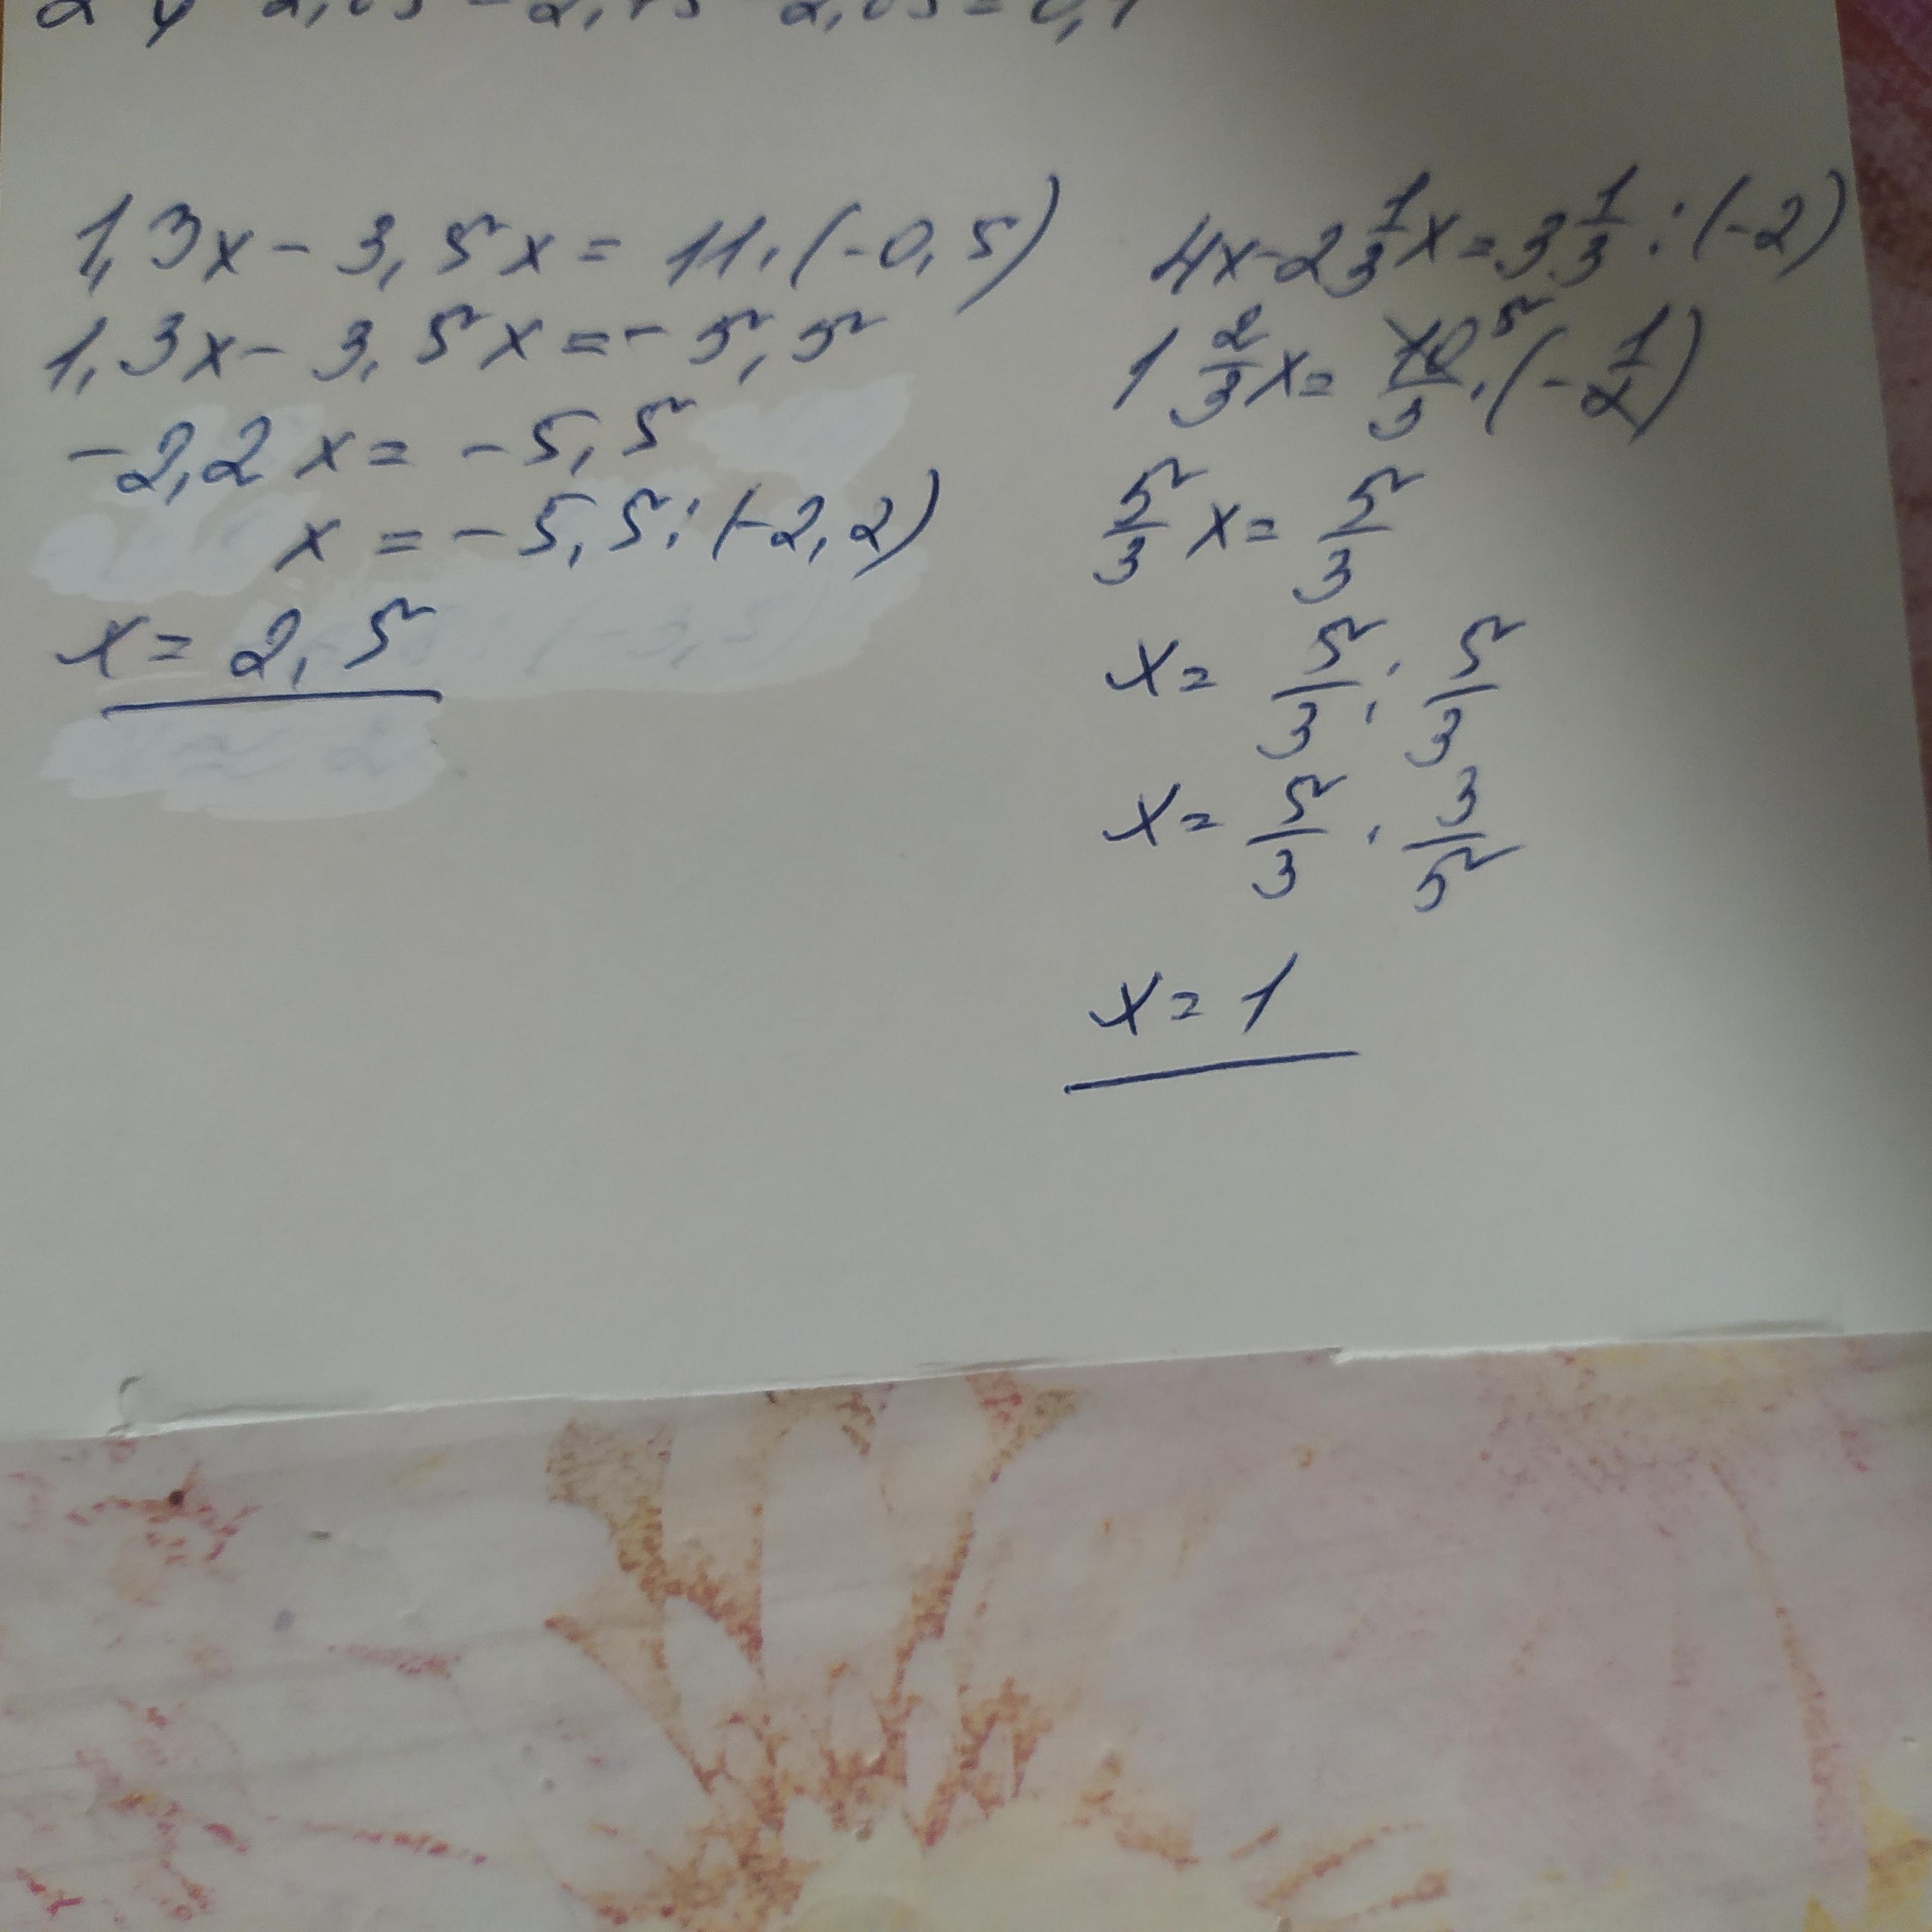 1,3x - 3,5x = 11·(-0,5)
1,3x - 3,5x = - 5,5
-2,2x = -5,5
x = -5,5:(-2,2)
x = 2,5
4x-2 1/3x=3 1/3:(-2)
1 2/3x= 10/3 5·(-1/2)
5/3 x= 5/3
x= 5/3 : 5/3
x= 5/3 · 3/5
x= 1